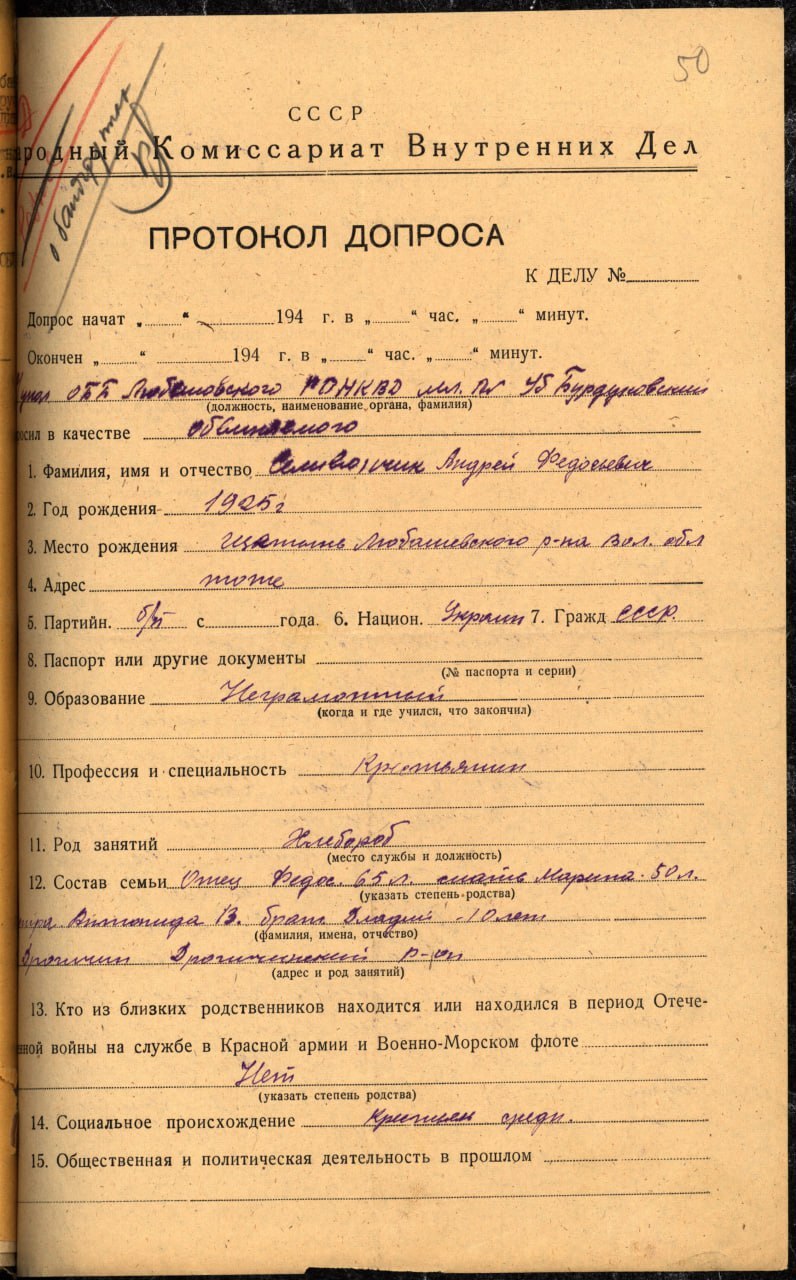 50
СССР
родный Комиссариат Внутренних Дел
о бандгруппах
ПРОТОКОЛ ДОПРОСА
К ДЕЛУ №
Допрос начат „ “ 194 г. в „ “ час. „ “ минут.
Окончен „ “ 194 г. в „ “ час. „ “ минут.
Любешовского РОНКВД мл. Бурдуковский
(должность, наименование органа, фамилия)
осил в качестве обвиняемого
1. Фамилия, имя и отчество Андрей Федосьевич
2. Год рождения 1925 г
3. Место рождения Любашевского р-на Вол. обл
4. Адрес тоже
5. Партийн. б/п с года. 6. Национ. Украин 7. Гражд СССР.
8. Паспорт или другие документы
(№ паспорта и серии)
9. Образование Неграмотный
(когда и где учился, что закончил)
10. Профессия и специальность Крестьянин
11. Род занятий Хлебороб
(место службы и должность)
12. Состав семьи Отец Федос 65 л. мать Марина 50 л.
(указать степень родства)
брат 10 лет
(фамилия, имена, отчество)
Дрогичин Дрогичинский р-он
(адрес и род занятий)
13. Кто из близких родственников находится или находился в период Отече-
нной войны на службе в Красной армии и Военно-Морском флоте
Нет
(указать степень родства)
14. Социальное происхождение Крестьян средн.
15. Общественная и политическая деятельность в прошлом